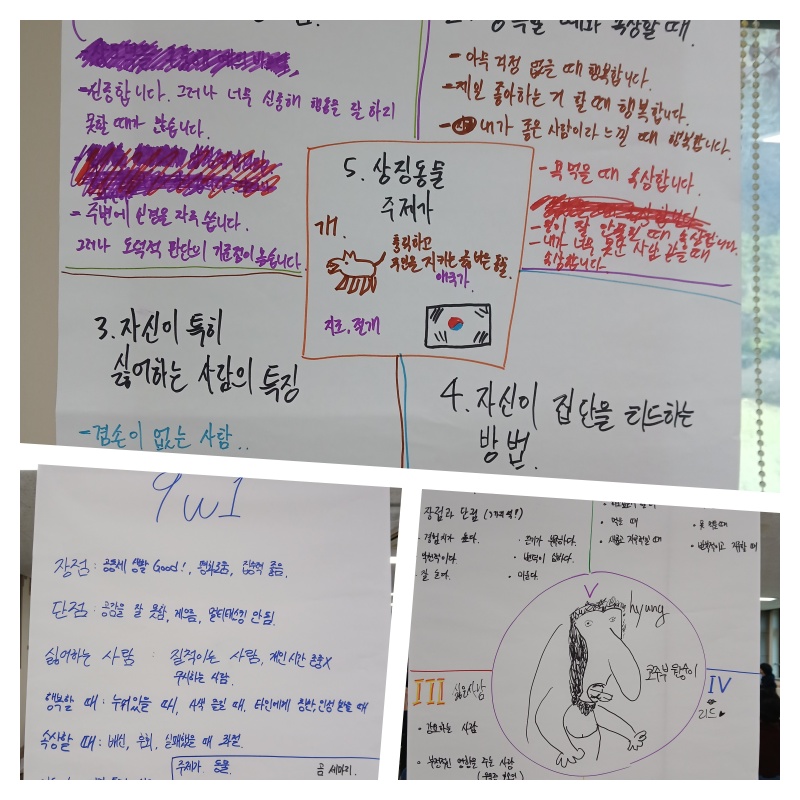 2. 행복할 때와 속상할 때.
- 신중합니다. 그러나 너무 신중해 행동을 잘 하지
못할 때가 많습니다.
- 주변에 신경을 자주 씁니다.
그러나 도덕적 판단의 기준점이 높습니다.
- 아무 걱정 없을 때 행복합니다.
- 제일 좋아하는 거 할 때 행복합니다.
- 내가 좋은 사람이라 느낄 때 행복합니다.
- 욕먹을 때 속상합니다.
- 일이 잘 안풀릴 때 속상합니다.
- 내가 너무 못난 사람 같을 때
속상합니다.
5. 상징동물
주제가
개.
충직하고
주인을 지키는 동물.
애국가.
지조, 절개
3. 자신이 특히
싫어하는 사람의 특징
- 겸손이 없는 사람..
4. 자신이 집단을 리드하는
방법.
9w1
장점 : 공동체 생활 Good!, 평화로움, 집중력 좋음.
단점 : 공감을 잘 못함, 게으름, 멀티태스킹 안됨.
싫어하는 사람 : 질척이는 사람, 개인시간 존중X
무시하는 사람.
행복할 때 : 누워있을 때, 타인에게 칭찬, 인정 받을 때
속상할 때 : 배신, 후회, 실패했을 때 좌절.
주제가 동물.
곰 세마리.
장점과 단점
· 경험치가 높다.
· 끈기가 부족하다.
· 낙천적이다.
· 변덕이 심하다.
· 잘 논다.
· 먹는 때
· 못 먹는 때
V
hyung
코주부 원숭이
III 싫은 사람
IV
리드
· 강요하는 사람
· 부정적인 영향을 주는 사람